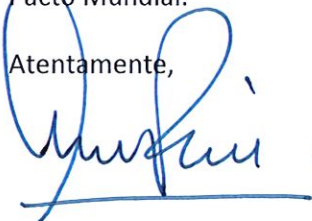 Pacto Mundial.
Atentamente,